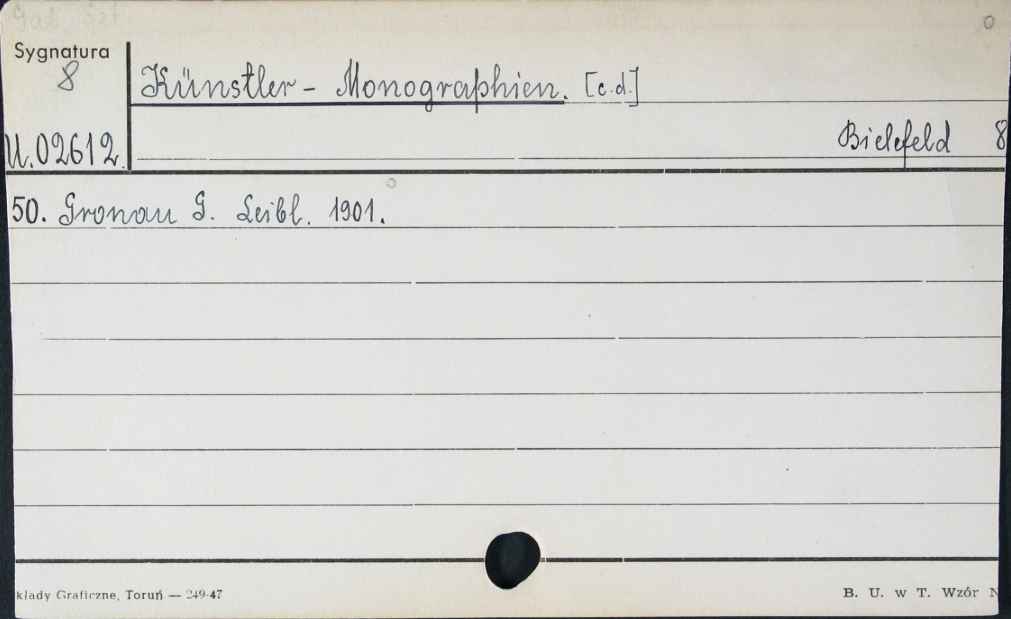 Sygnatura
8
U.02612.
Künstler - Monographien. [c.d.]
Bielefeld 8
50. Gronau G. Leibl. 1901.
kłady Graficzne, Toruń — 249-47
B. U. w T. Wzór N